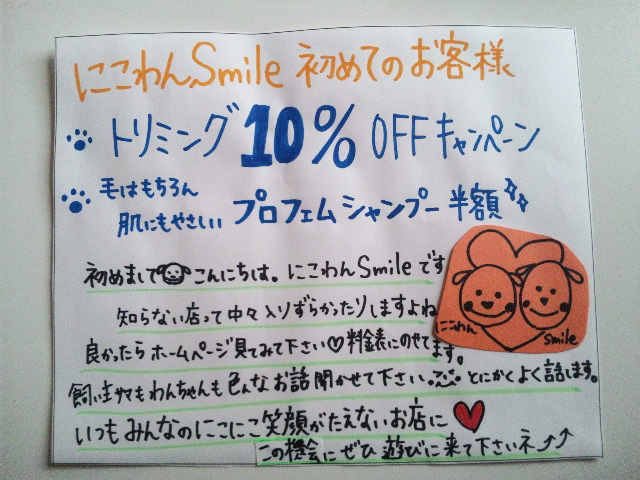 にこわんSmile 初めてのお客様
トリミング 10% OFFキャンペーン
毛はもちろん
肌にもやさしい プロフェムシャンプー 半額
初めまして こんにちは。にこわんSmileです
知らない店って中々入りずらかったりしますよね
良かったらホームページ見てみて下さい♡料金表にのせてます。
飼い主サマもわんちゃんも色んなお話聞かせて下さい。とにかくよく話します。
いつもみんなのにこにこ笑顔がたえないお店に♥
この機会にぜひ遊びに来て下さいネ⤴⤴
にこわん
smile